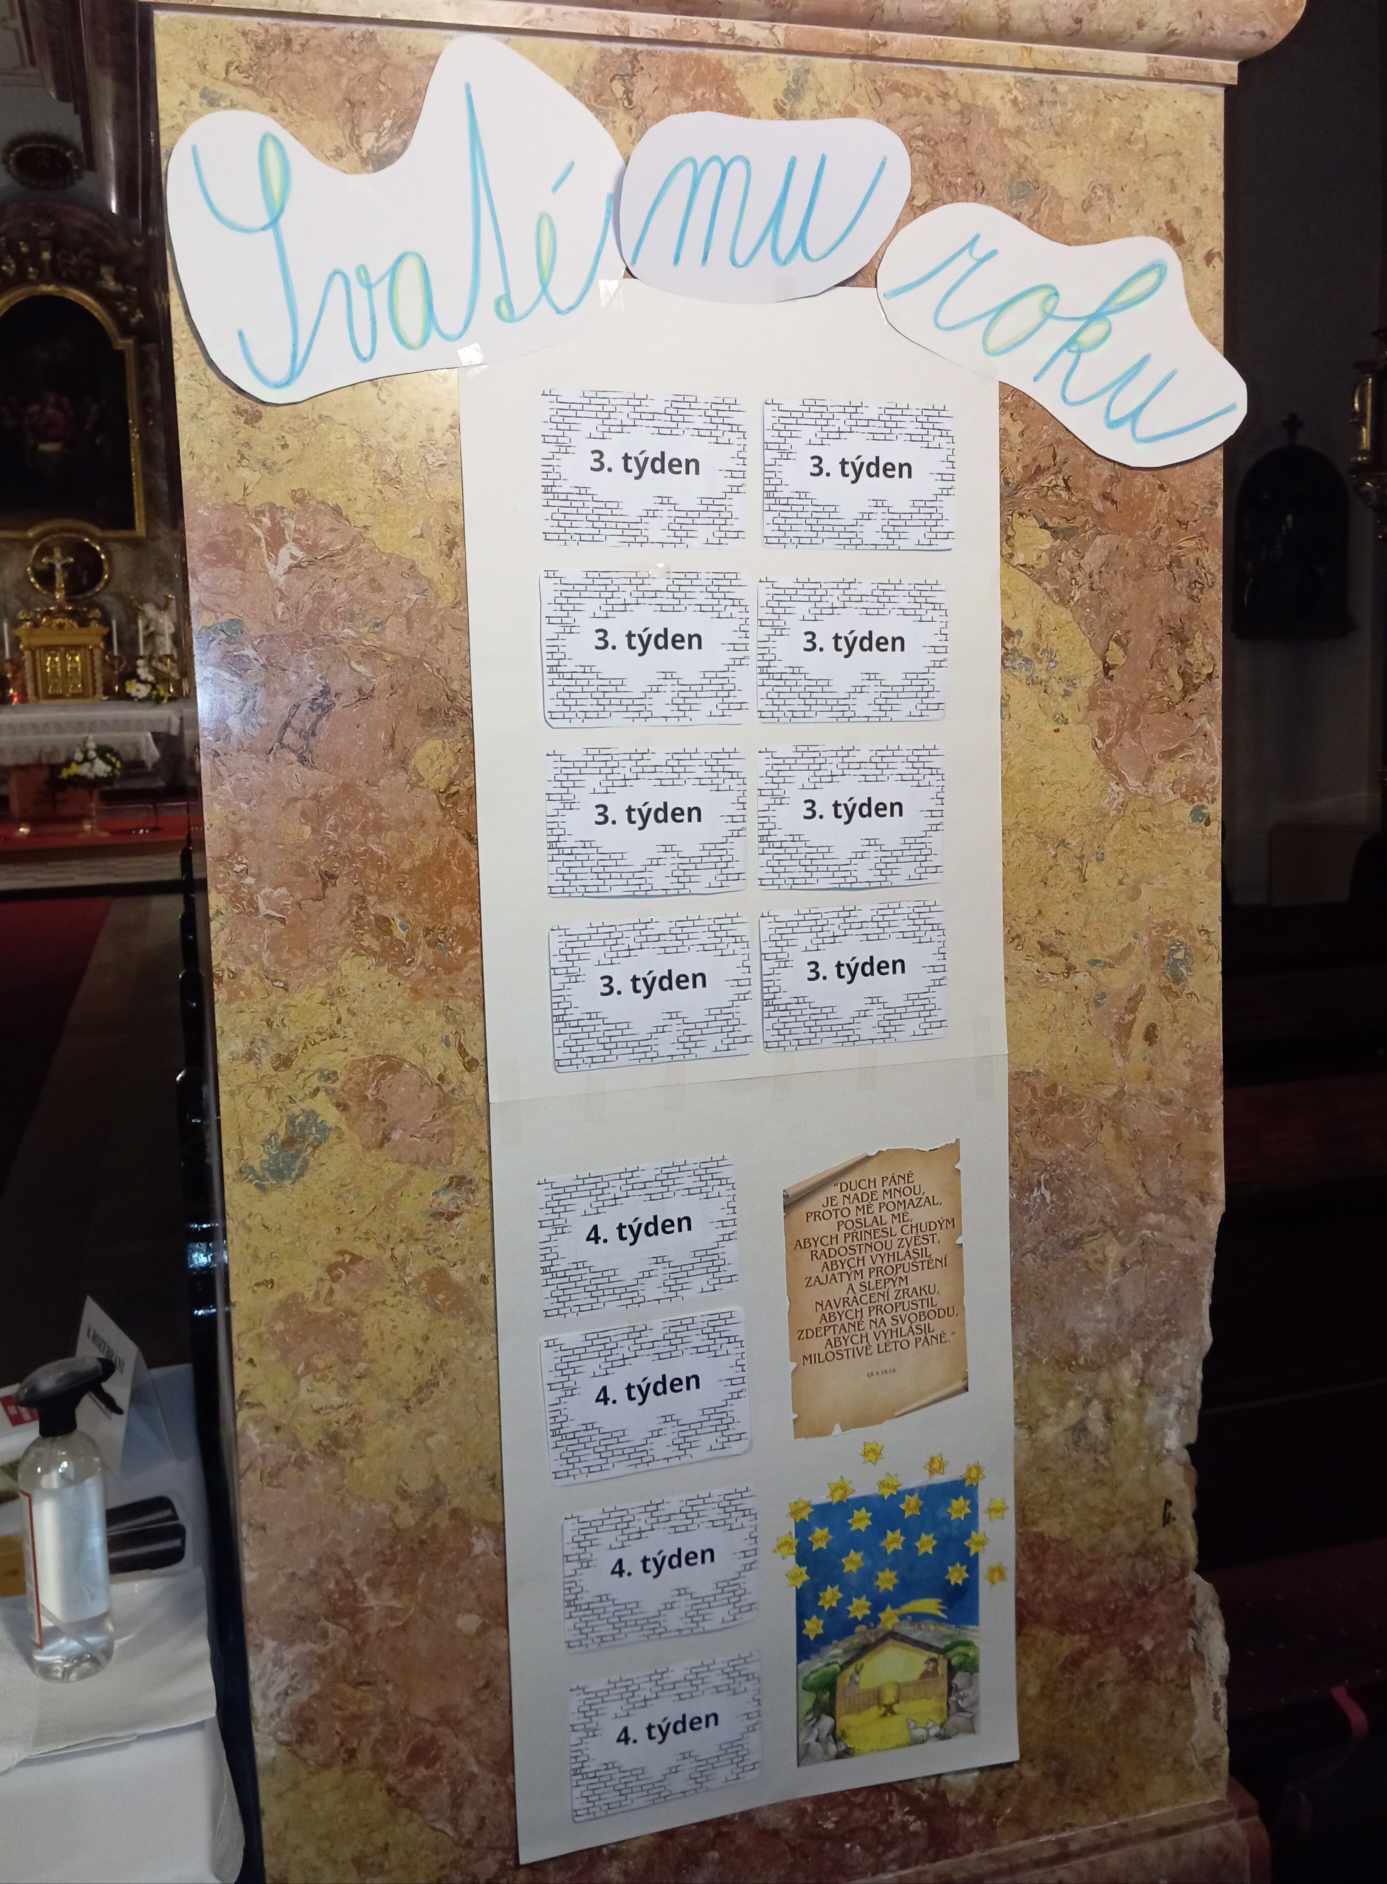 Svatému roku
3. týden
3. týden
3. týden
3. týden
3. týden
3. týden
3. týden
3. týden
4. týden
4. týden
4. týden
4. týden
"DUCH PÁNĚ
JE NADE MNOU,
PROTO MĚ POMAZAL,
POSLAL MĚ,
ABYCH PŘINESL CHUDÝM
RADOSTNOU ZVĚST,
ABYCH VYHLÁSIL
ZAJATÝM PROPUŠTĚNÍ
A SLEPÝM
NAVRÁCENÍ ZRAKU,
ABYCH PROPUSTIL
ZDEPTANÉ NA SVOBODU,
ABYCH VYHLÁSIL
MILOSTIVÉ LÉTO PÁNĚ."